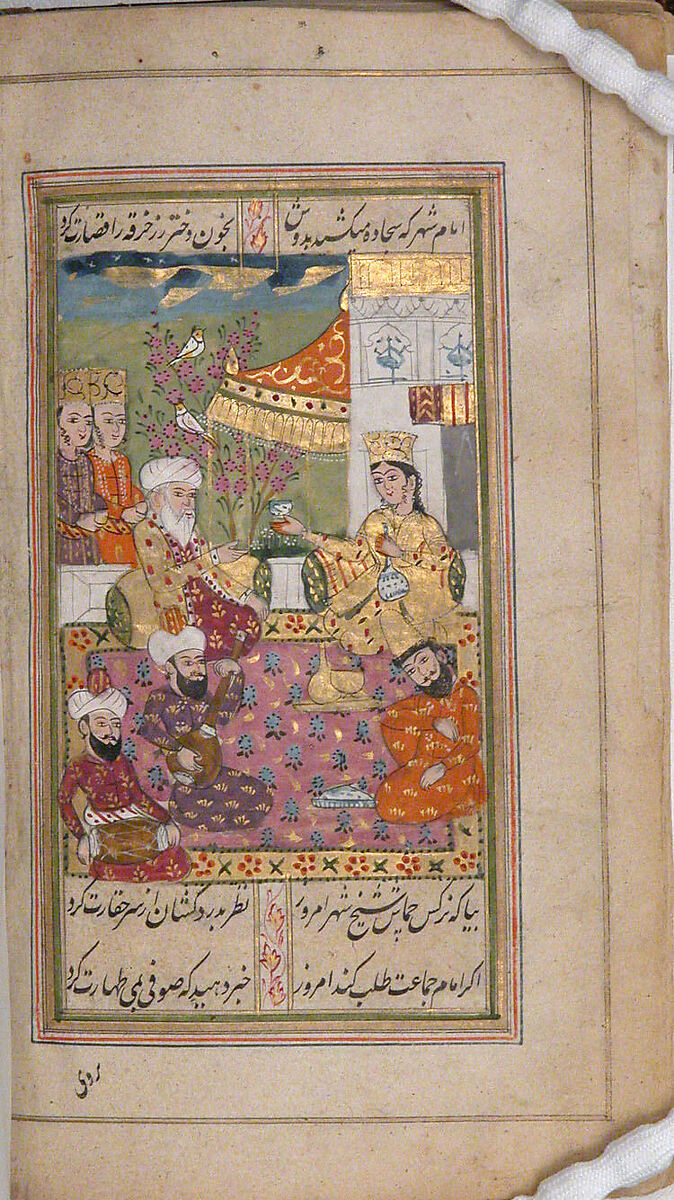 امام شهر که سجاده میکشید بدوش بخون دختر رز خرقه را قصارت کرد
بیا که نرکس جماش شیخ شهر امروز نظر بدرد کشان از سر حقارت کرد
اکر امام جماعت طلب کند امروز خبر دهید که صوفی بمی طهارت کرد
روی